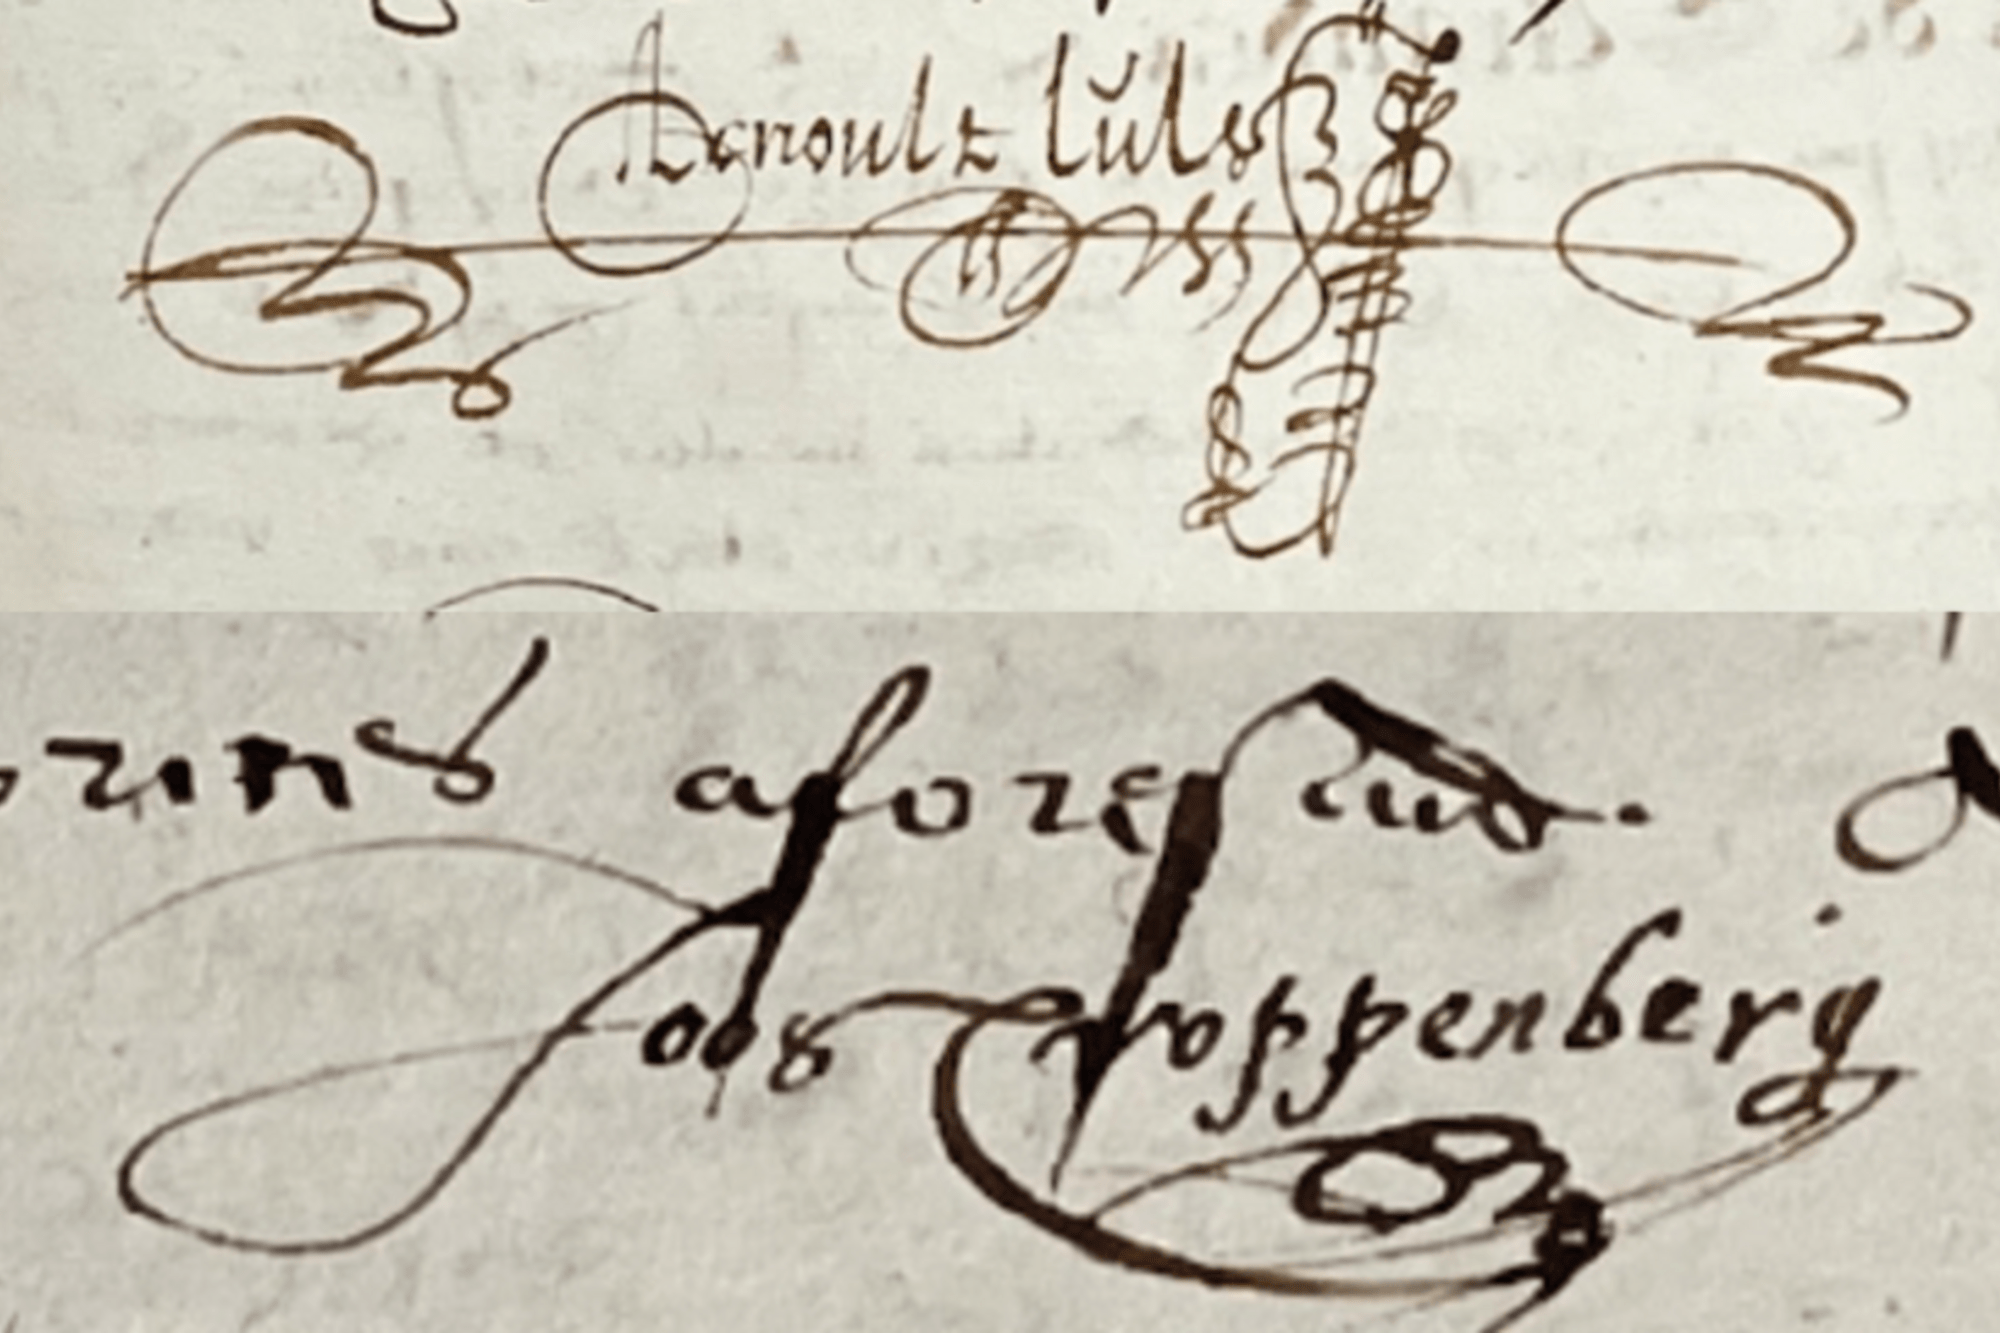 Aernoult lŭls
aforesaid.
Joos Croppenberg